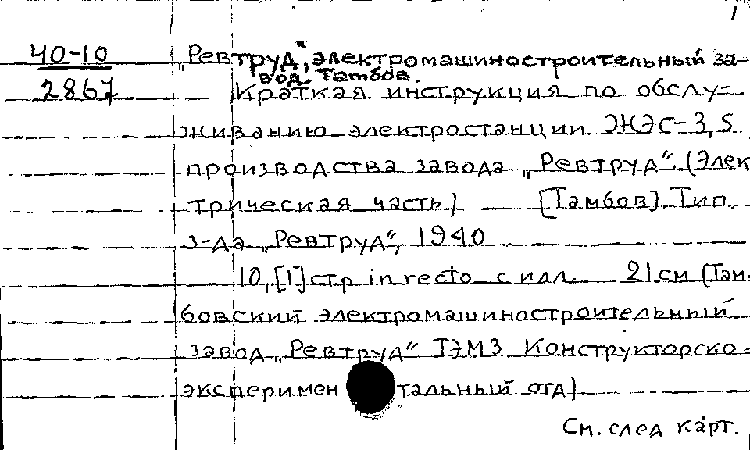 1
40-10
2867
„Ревтруд“, электромашиностроительный за-
вод. Тамбов.
Краткая инструкция по обслу-
живанию электростанции ЖЭС-3,5
производства завода „Ревтруд“. (Элек
трическая часть) [Тамбов]. Тип.
з-да „Ревтруд“, 1940
10, [1] стр in recto с илл. 21 см (Там.
бовский электромашиностроительный
завод „Ревтруд“ ТЭМЗ Конструкторско-
эксперимен тальный отд)
См. след карт.